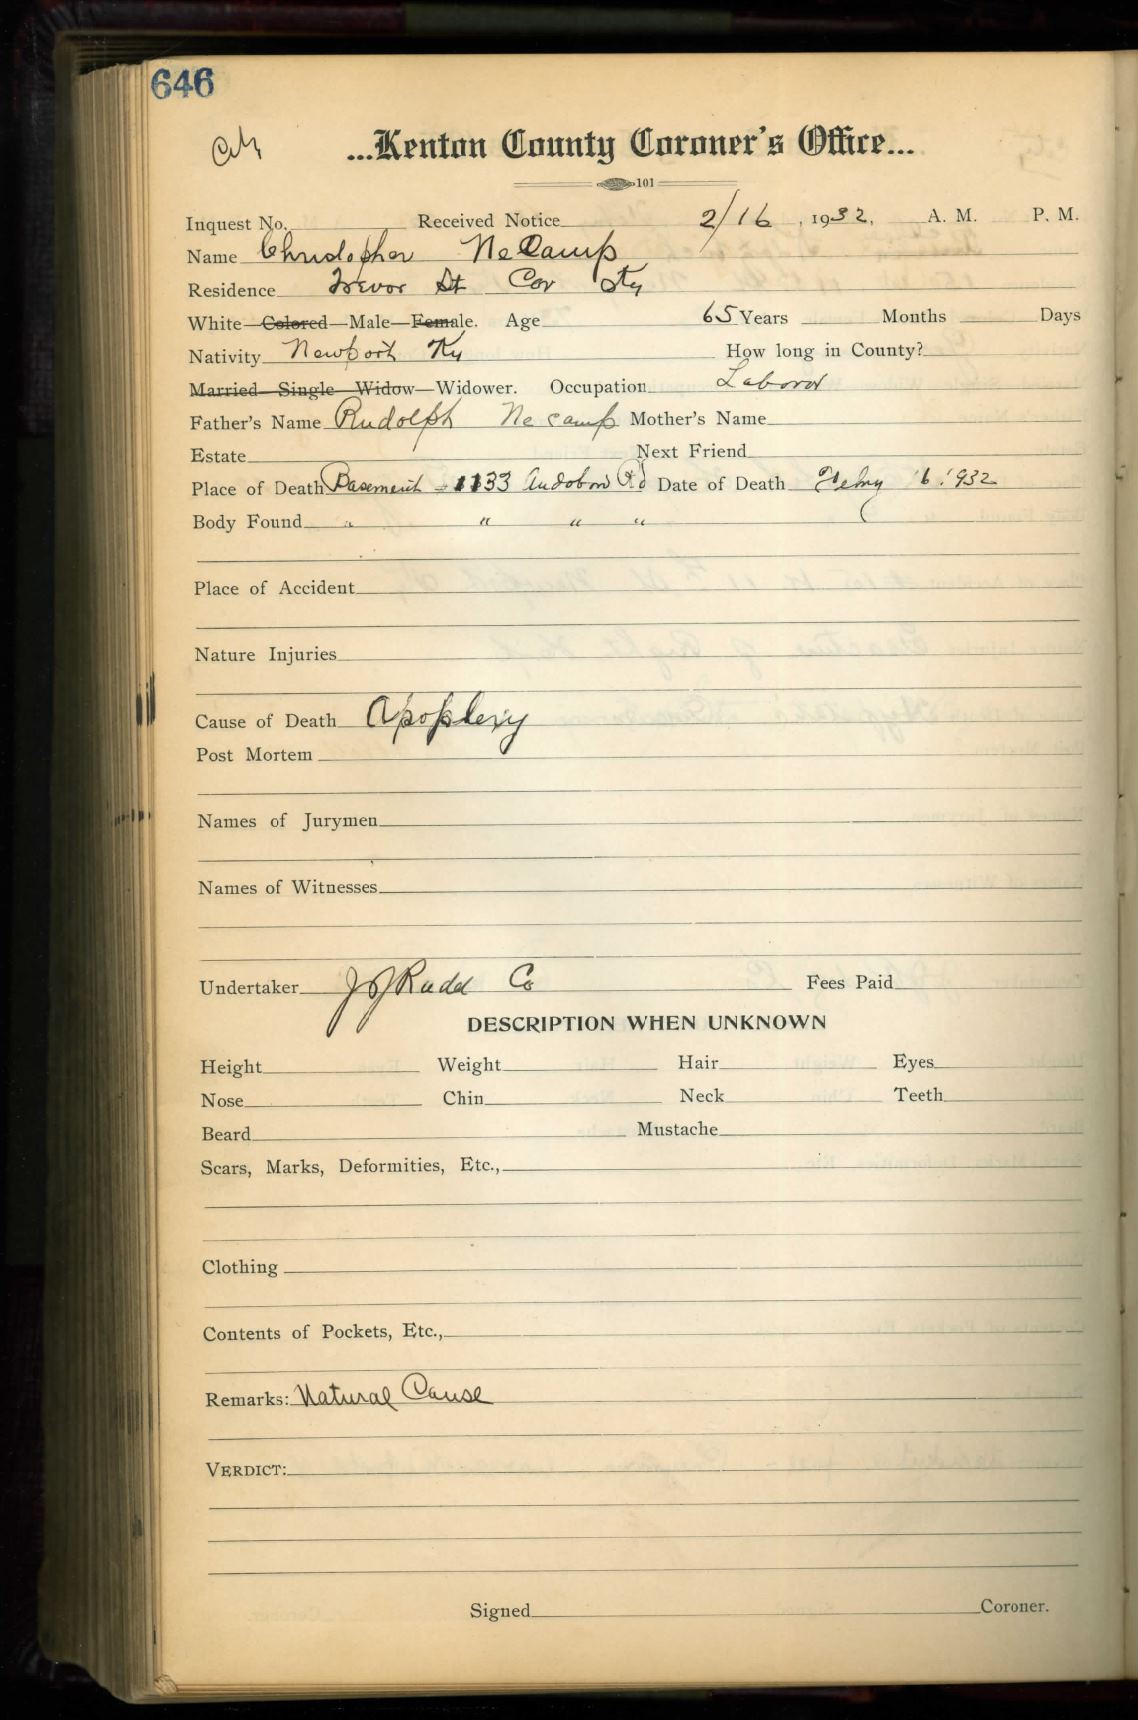 646
City
...Kenton County Coroner's Office...
101
Inquest No. Received Notice 2/16, 1932, A. M. P. M.
Name Christopher NeCamp
Residence Trevor St Cov Ky
White—Colored—Male—Female. Age 65 Years Months Days
Nativity Newport Ky How long in County?
Married—Single—Widow—Widower. Occupation Laboror
Father's Name Rudolph Necamp Mother's Name
Estate Next Friend
Place of Death Basement - 1133 Audobon Rd Date of Death Febry 16 1932
Body Found " " " "
Place of Accident
Nature Injuries
Cause of Death Apoplexy
Post Mortem
Names of Jurymen
Names of Witnesses
Undertaker Radel Co Fees Paid
DESCRIPTION WHEN UNKNOWN
Height Weight Hair Eyes
Nose Chin Neck Teeth
Beard Mustache
Scars, Marks, Deformities, Etc.,
Clothing
Contents of Pockets, Etc.,
Remarks: Natural Cause
VERDICT:
Signed Coroner.